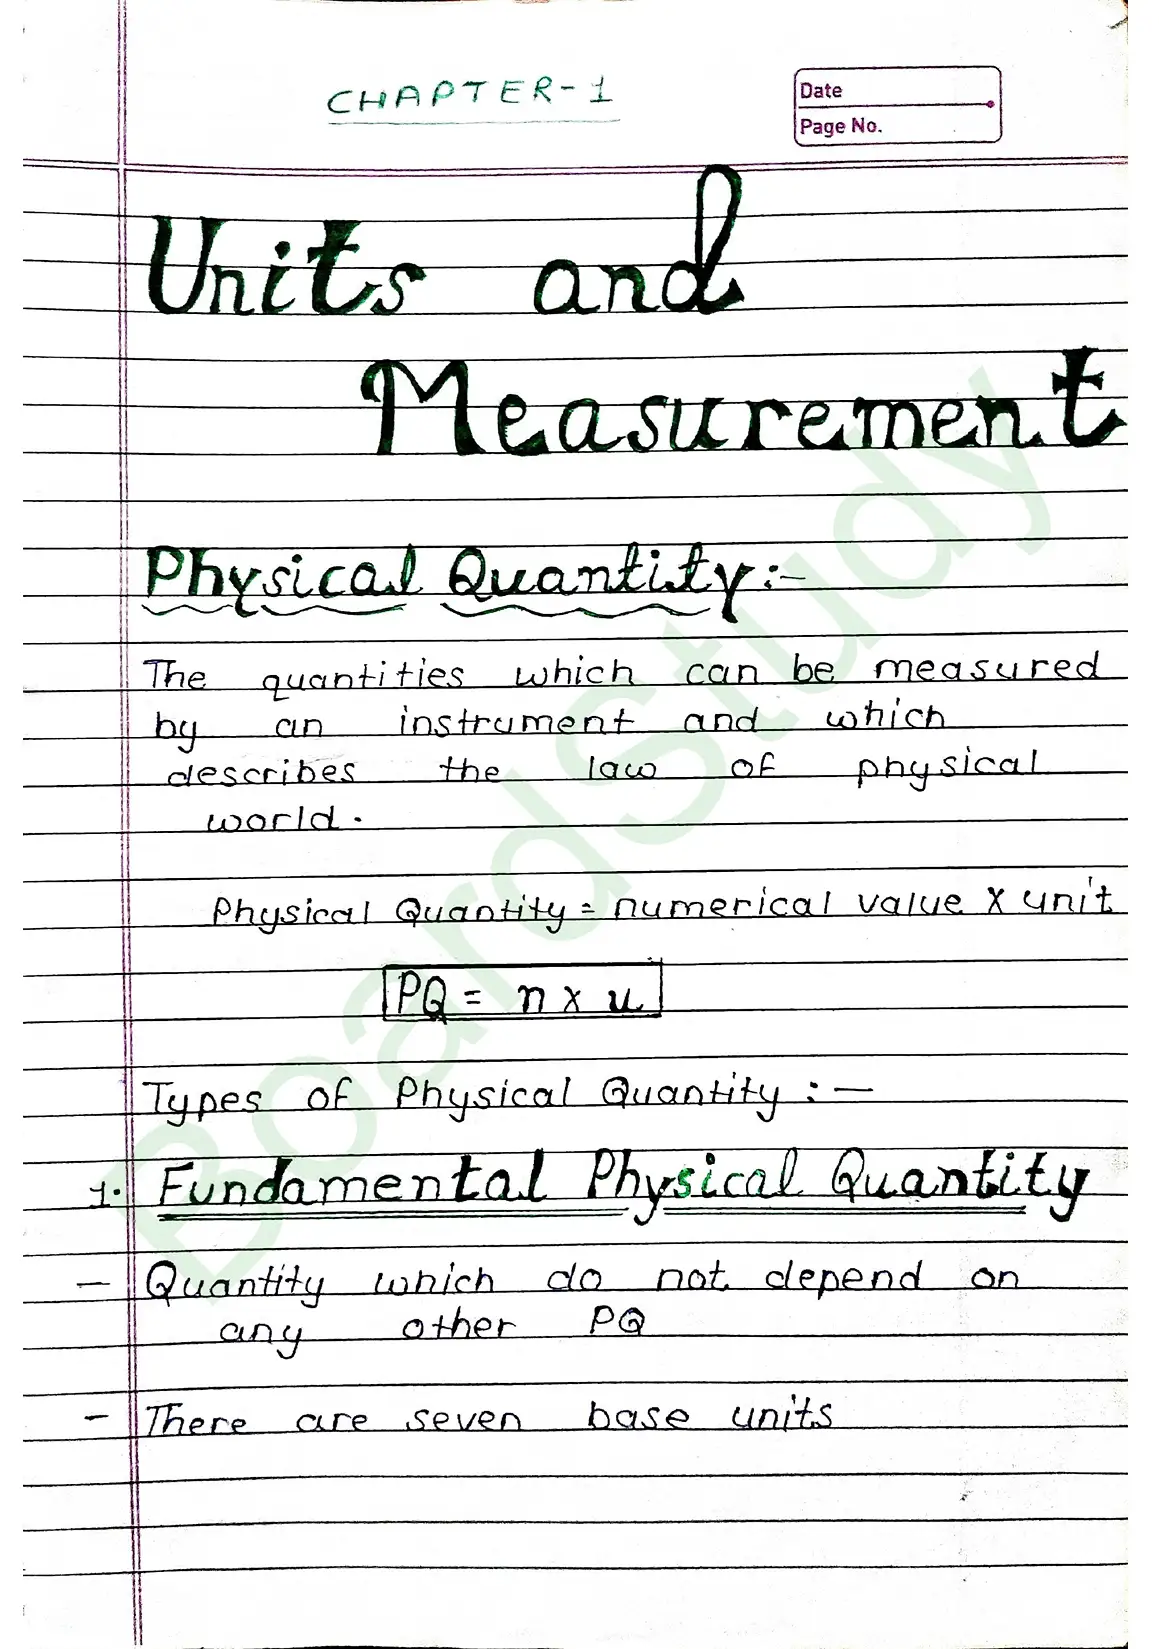 CHAPTER-1
Date
Page No.
Units and
Measurement
Physical Quantity:-
The quantities which can be measured
by an instrument and which
describes the law of physical
world.
Physical Quantity = numerical value X unit
PQ = n x u
Types of Physical Quantity : —
1. Fundamental Physical Quantity
— Quantity which do not depend on
any other PQ
- There are seven base units
BoardStudy